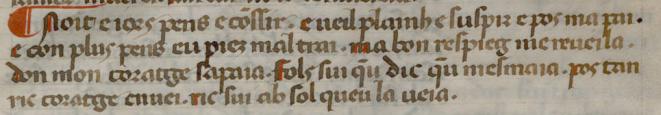 Noit e iorn pens e cossir. e ueil planh e suspir e pos ma pai.
e con plus pens eu piez mal trai. ma bon respieg me reueila.
don mon coratge sapaia. fols sui qu dic qu mesmaia. pos tan
ric coratge enuei. ric sui ab sol queu la ueia.